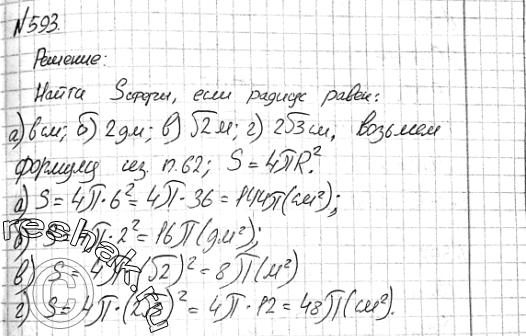 №593.
Решение:
Найти Sсферы, если радиус равен:
а) 6 см; б) 2 дм; в) √2 м; г) 2√3 см, Возьмем
формулу из п.62; S = 4πR².
а) S = 4π·6² = 4π·36 = 144π(см²);
б) S = 4π·2² = 16π(дм²);
в) S = 4π·(√2)² = 8π(м²)
г) S = 4π·(2√3)² = 4π·12 = 48π(см²).
reshak.ru
©